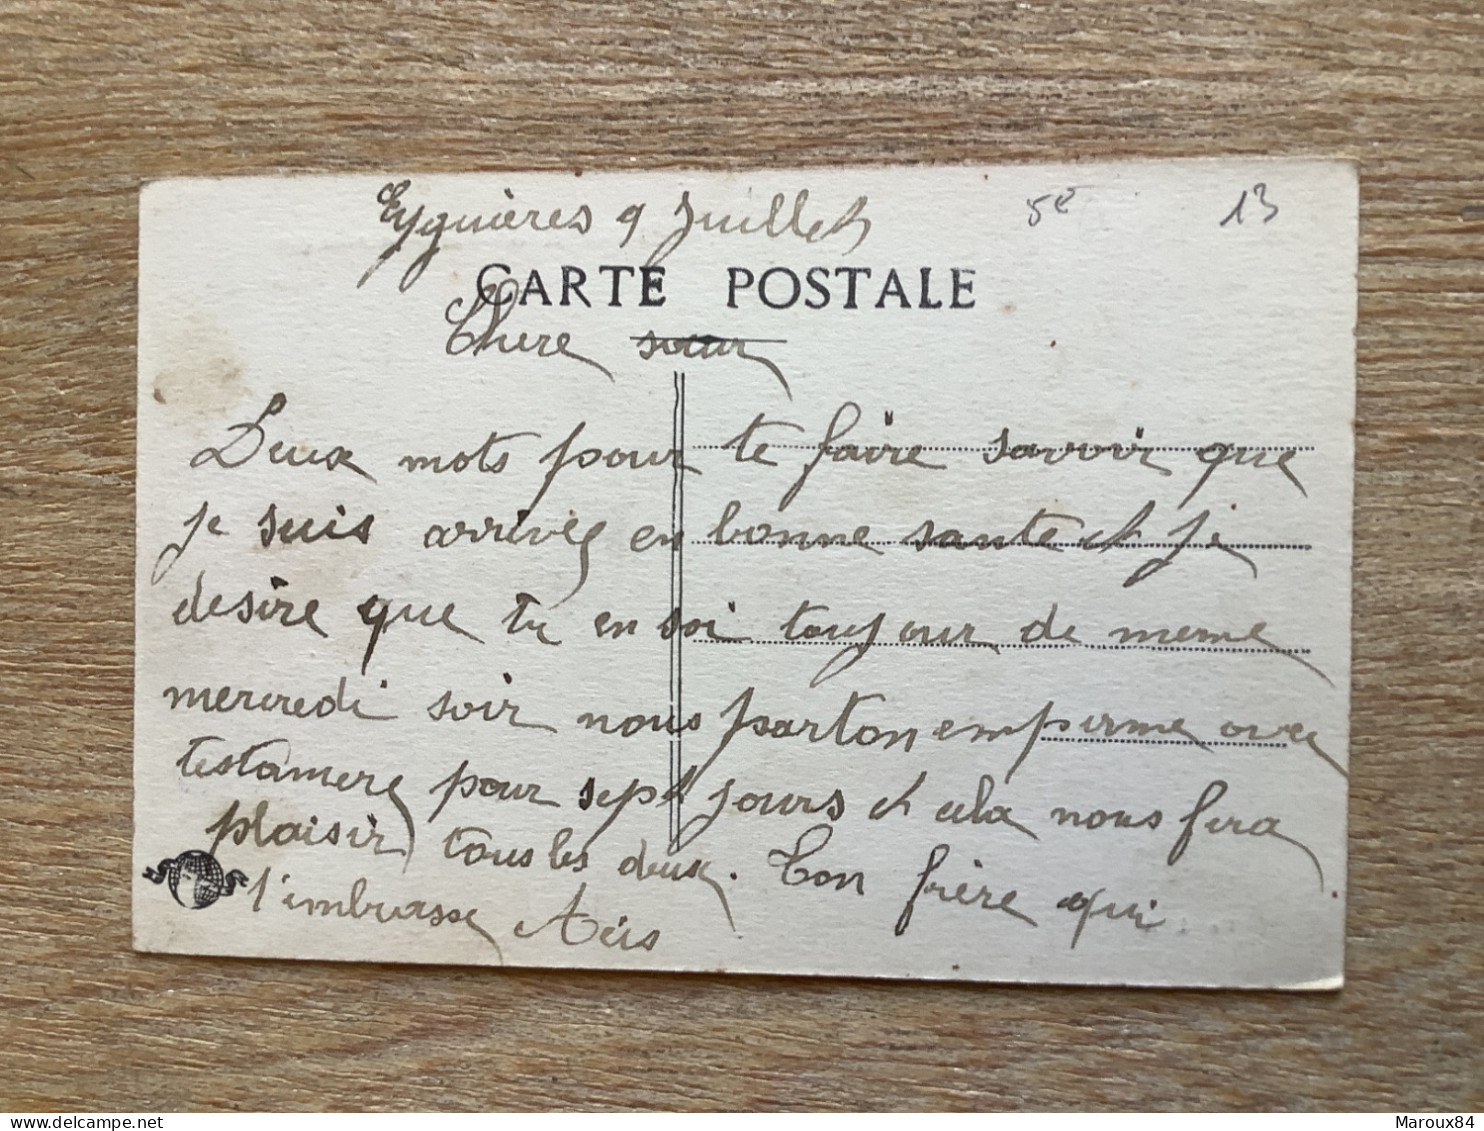 Eyguières 9 Juillet
5e 13
CARTE POSTALE
Chere sœur
Deux mots pour te faire savoir que
je suis arrivés en bonne sante et je
desire que tu en soi toujour de meme
mercredi soir nous parton empirme avec
testamere pour sept jours et cela nous fera
plaisir tous les deux. Ton frère qui
t'imbrasse
Maroux84